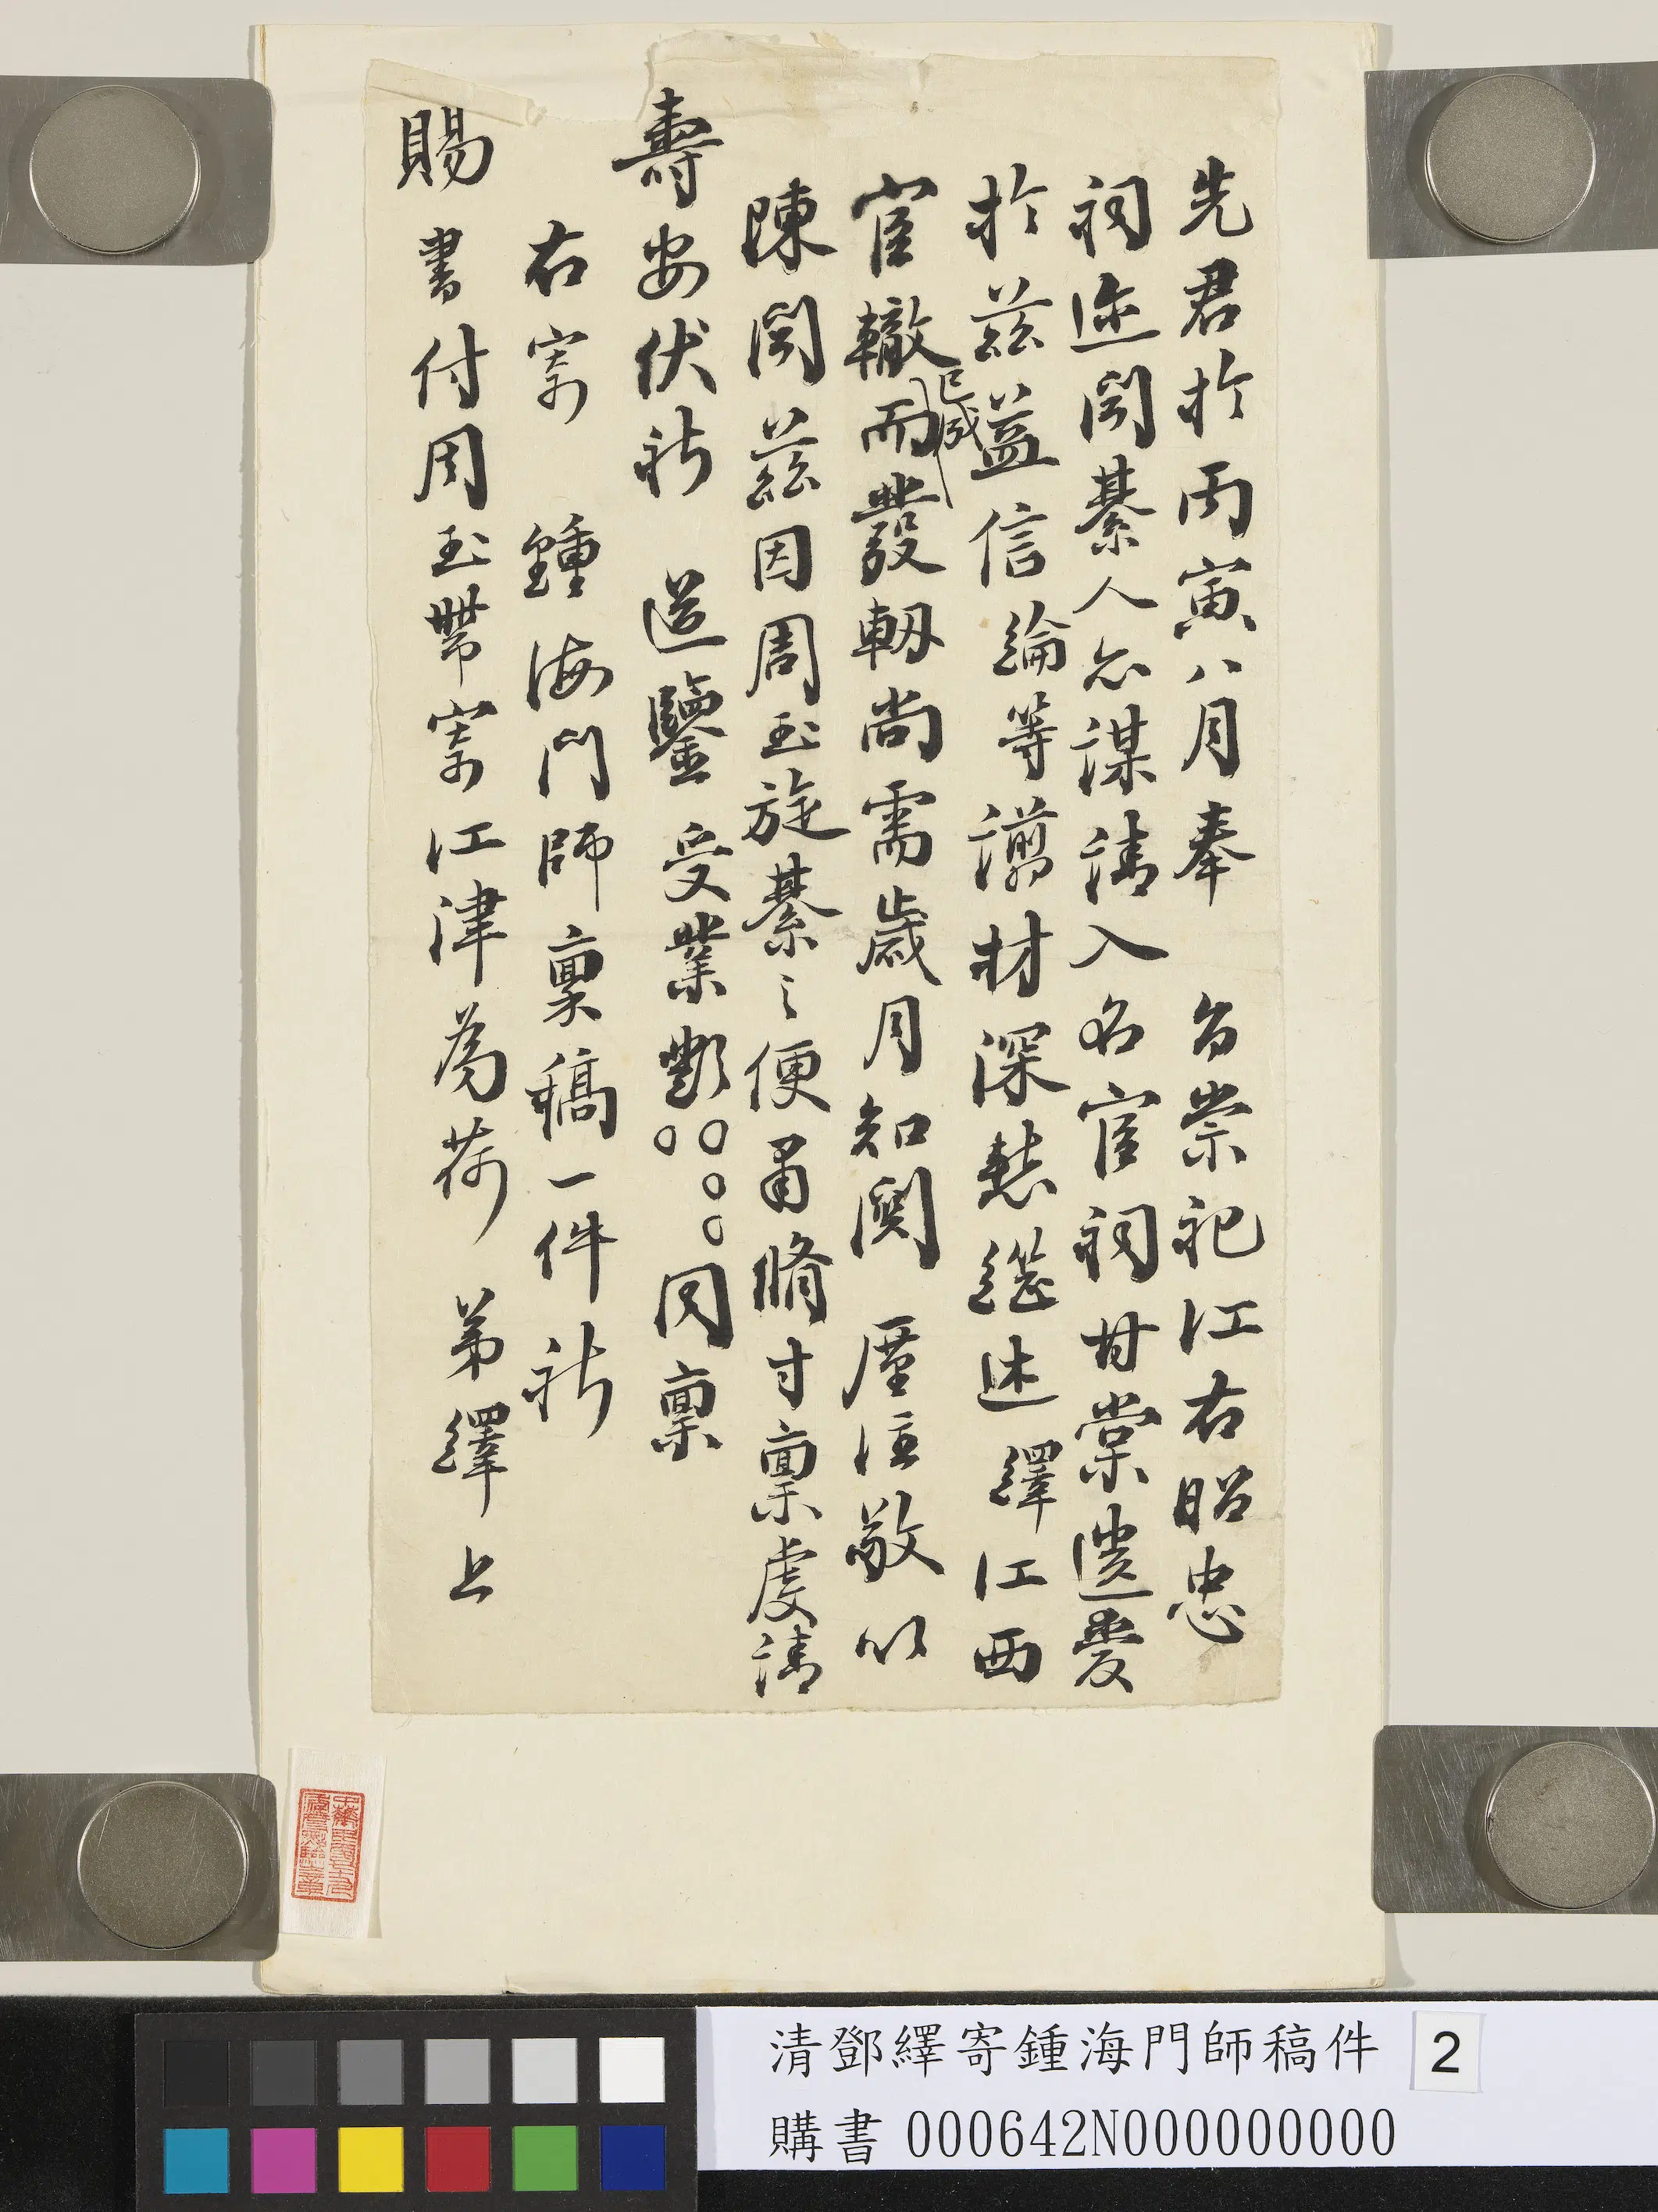 先君於丙寅八月奉 旨崇祀江右昭忠
祠迩聞綦人亦謀請入名宦祠甘棠遺愛
於茲益信綸等譾材深慙繼述 繹江西
宦轍而發軔尚需歲月知關 廑注敬以
已成
陳聞茲因周玉旋綦之便肅脩寸稟虔請
壽安伏祈 道鑒 受業鄧○○○○同稟
右寄 鍾海門師稟稿一件祈
賜書付周玉帶寄江津為荷 弟繹上
清鄧繹寄鍾海門師稿件 2
購書 000642N000000000